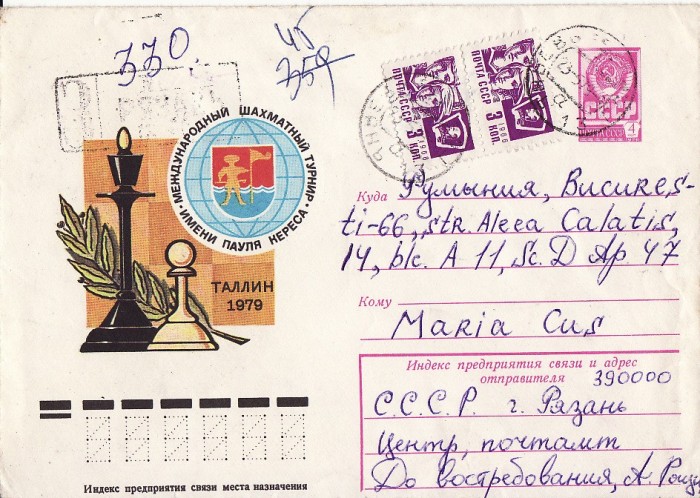 330
45
359
МЕЖДУНАРОДНЫЙ ШАХМАТНЫЙ ТУРНИР
ИМЕНИ ПАУЛЯ КЕРЕСА
ТАЛЛИН
1979
ПОЧТА СССР 3 КОП. 1966
ПОЧТА СССР 3 КОП. 1966
СССР
4
Куда Румыния, Bucures-
ti-66, str. Aleea Calatis,
14, blc. A 11, Sc. D Ap. 47
Кому
Maria Cus
Индекс предприятия связи и адрес
отправителя 390000
С.С.С.Р. г. Рязань
Центр, почтамт
До востребования, А.
Индекс предприятия связи места назначения